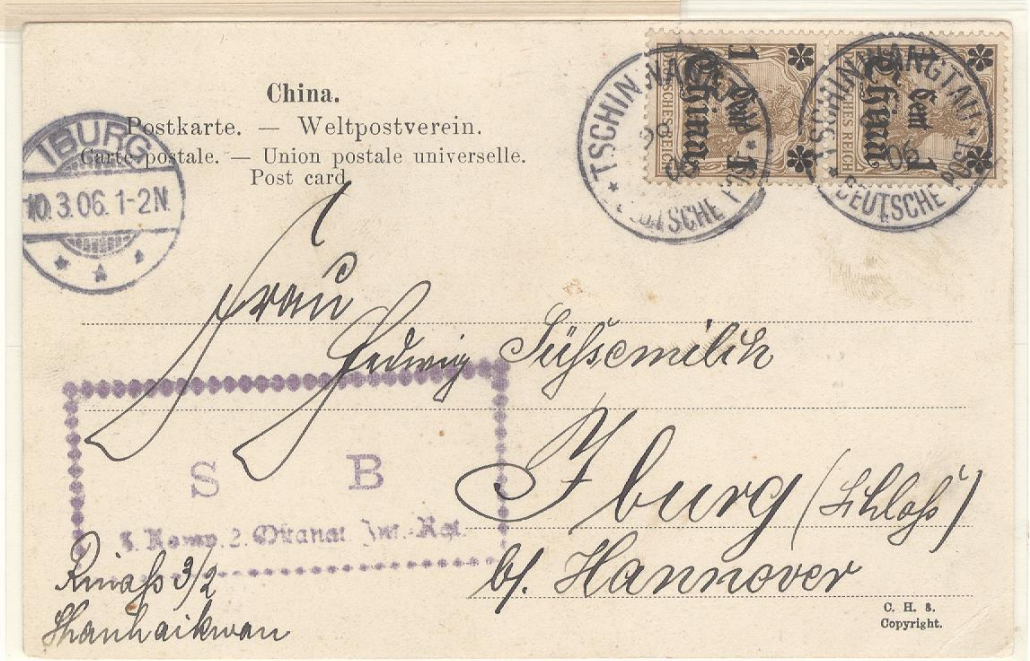 China.
Postkarte. — Weltpostverein.
Carte postale. — Union postale universelle.
Post card.
IBURG
10.3.06. 1-2N.
TSCHINWANGTAU
DEUTSCHE POST
TSCHINWANGTAU
DEUTSCHE POST
1 Cent 1
China
DEUTSCHES REICH
1 Cent 1
China
DEUTSCHES REICH
Frau
Hedwig Süßsemilch
Iburg (Schloß)
b/. Hannover
S B
Komp. 2. Ostasiat. Inf.-Rgt.
3/2
Shanhaikwan
C. H. 8.
Copyright.